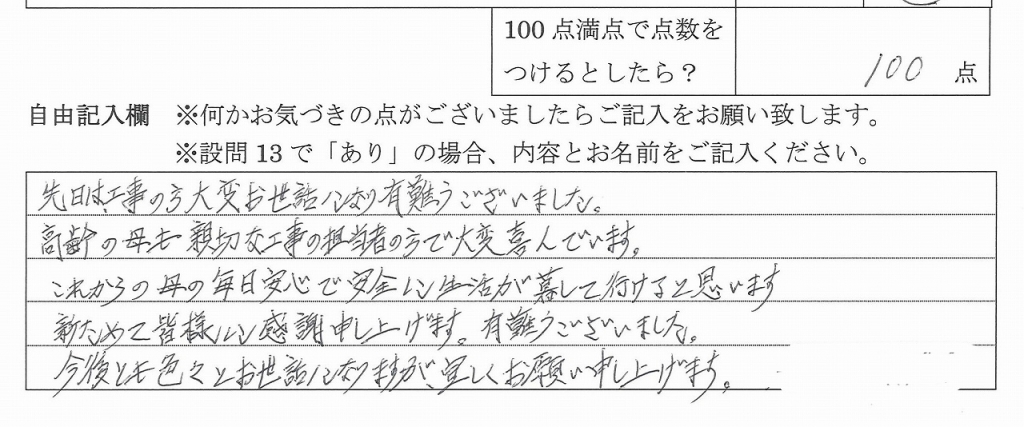 100点満点で点数を
つけるとしたら？ 100 点
自由記入欄 ※何かお気づきの点がございましたらご記入をお願い致します。
※設問13で「あり」の場合、内容とお名前をご記入ください。
先日は、工事の方大変お世話になり有難うございました。
高齢の母も親切な工事の担当者の方で大変喜んでいます。
これからの母の毎日安心で安全に生活が暮して行けると思います
新ためて皆様に感謝申し上げます。有難うございました。
今後とも色々とお世話になりますが、宜しくお願い申し上げます。